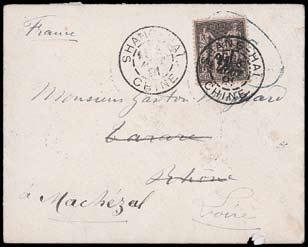 France
SHANG-HAI
CHINE
SHANG-HAI
CHINE
Monsieur Gaston
Tarare
Rhône
à Machézal
Loire